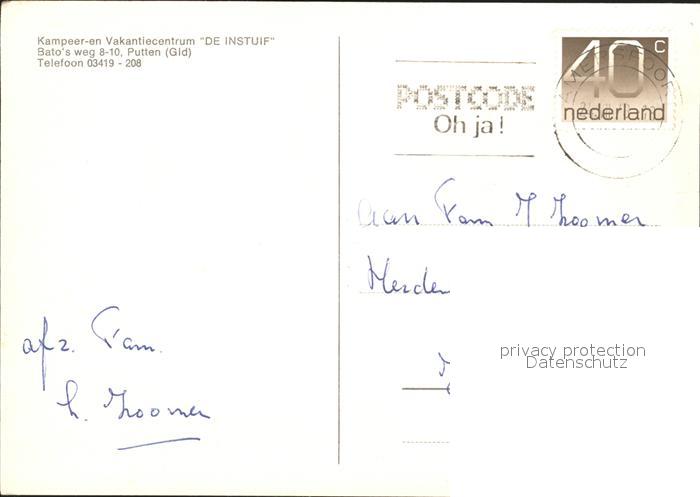 Kampeer-en Vakantiecentrum "DE INSTUIF"
Bato's weg 8-10, Putten (Gld)
Telefoon 03419 - 208
POSTCODE
Oh ja!
40 c
nederland
AMERSFOORT
aan Fam
privacy protection
Datenschutz
afz. Fam.
h.